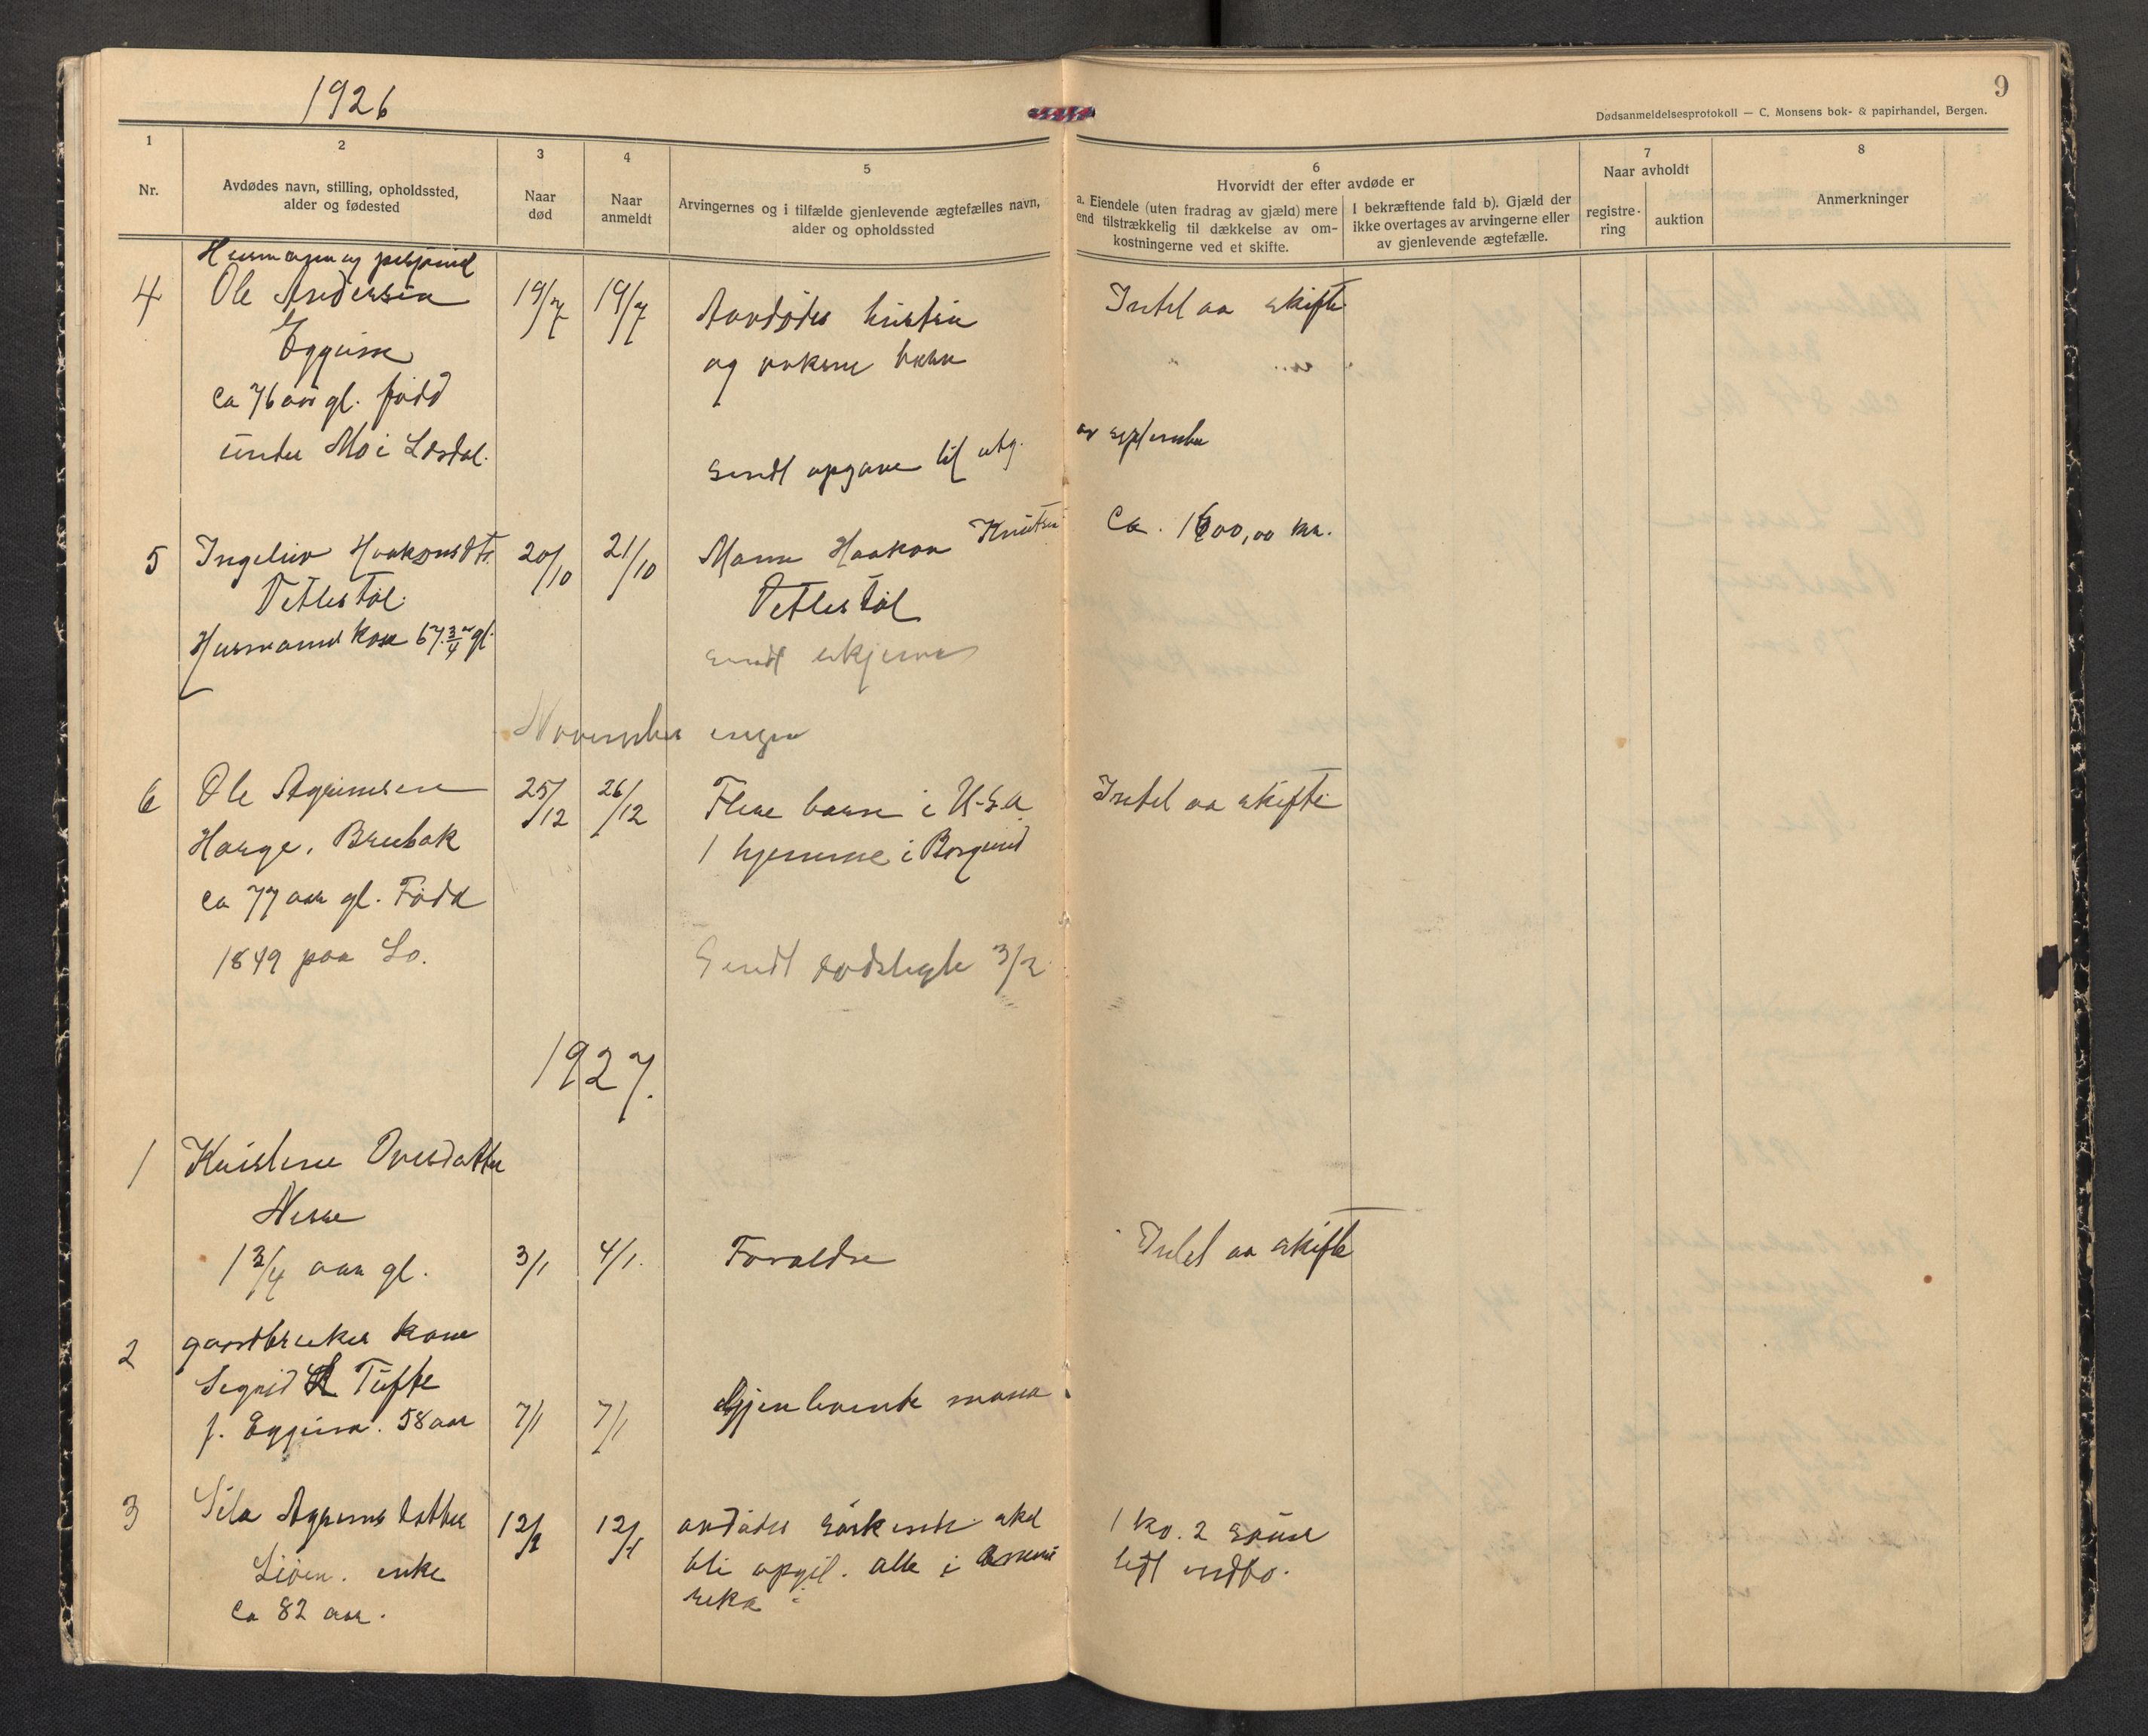 1926
9
Dødsanmeldelsesprotokoll — C. Monsens bok- & papirhandel, Bergen.
1
Nr.
2
Avdødes navn, stilling, opholdssted,
alder og fødested
3
Naar
død
4
Naar
anmeldt
5
Arvingernes og i tilfælde gjenlevende ægtefælles navn,
alder og opholdssted
6
Hvorvidt der efter avdøde er
a. Eiendele (uten fradrag av gjæld) mere
end tilstrækkelig til dækkelse av om-
kostningerne ved et skifte.
I bekræftende fald b). Gjæld der
ikke overtages av arvingerne eller
av gjenlevende ægtefælle.
7
Naar avholdt
registre-
ring
auktion
8
Anmerkninger
Husmann og
4 Ole Andersen 19/7 19/7 Avdødes hustru Intet aa skifte
Eggum og voksne barn
ca 76 aar gl. født
under Mo i Lærdal.
Sendt opgave til utg. av september
5 Ingeliv Haakonsdtr. 20/10 21/10 Mann Haakon Knutsen Ca. 1600,00 kr.
Vetlestøl. Vetlestøl
Husmands kone 67 3/4 gl.
November ingen
6 Ole Agrimsen 25/12 26/12 Flere barn i U.S.A. Intet aa skifte
Hauge, Brubak 1 hjemme i Borgund
ca 77 aar gl. Född
1849 paa Lo.
Sendt 3/2
1927.
1 Kristine Ovesdatter
Nesse
1 3/4 aar gl. 3/1 4/1. Foraldre Intet aa skifte
2 gardbruker kone
Sigrid Tufte
f. Eggum. 58 aar 7/1 7/1 Gjenlevende mann
3 Sila Agrimsdatter 12/1 12/1 avdødes søskende skal 1 ko. 2 sauer
enke bli opgit. alle i Ameri litt indbo.
ca 82 aar. rika